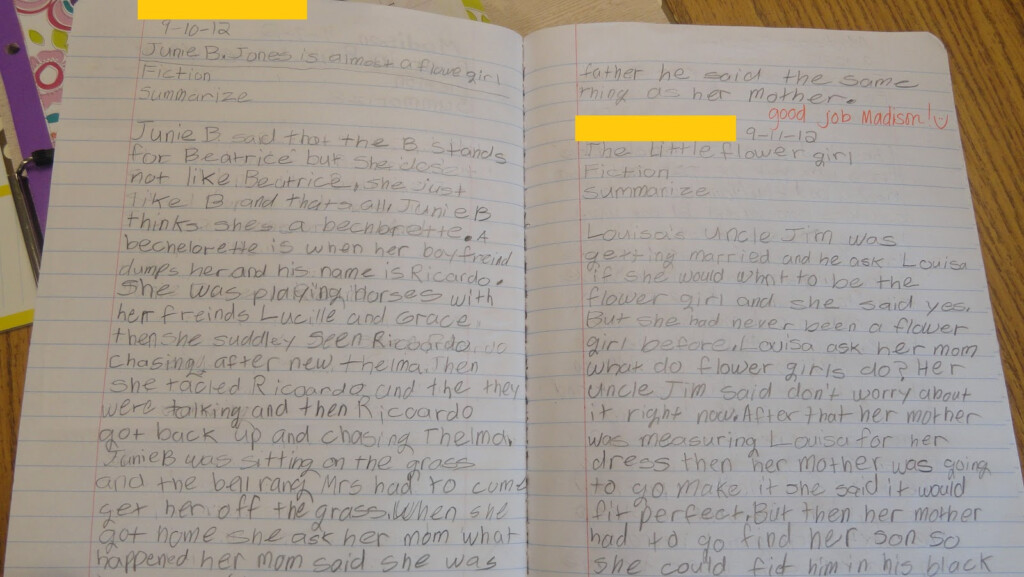 9-10-12
Junie B. Jones is almost a flowe girl
Fiction
Summarize
Junie B said that the B stands
for Beatrice but she dose
not like Beatrice, she just
like B and thats all, Junie B
thinks shes a bechbrette. A
bechelorette is when her boyfreind
dumps her and his name is Ricardo.
She was playing horses with
her freinds Lucille and Grace.
then she suddley seen Ricoardo go
chasing after new thelma. Then
she tacled Ricoardo, and the they
were talking and then Ricoardo
got back up and chasing Thelma.
Junie B was sitting on the grass
and the bell rang Mrs had to come
get her off the grass. When she
got home she ask her mom what
happened her mom said she was
father he said the same
thing as her mother.
good job Madison!
9-11-12
The Little flower girl
Fiction
Summarize
Louisa's Uncle Jim was
getting married and he ask Louisa
if she would what to be the
flower girl and she said yes.
But she had never been a flower
girl before. Louisa ask her mom
what do flower girls do? Her
uncle Jim said don't worry about
it right now. After that her mother
was measuring Louisa for her
dress then her mother was going
to go make it she said it would
fit perfect. But then her mother
had to go find her son so
she could fid him in his black